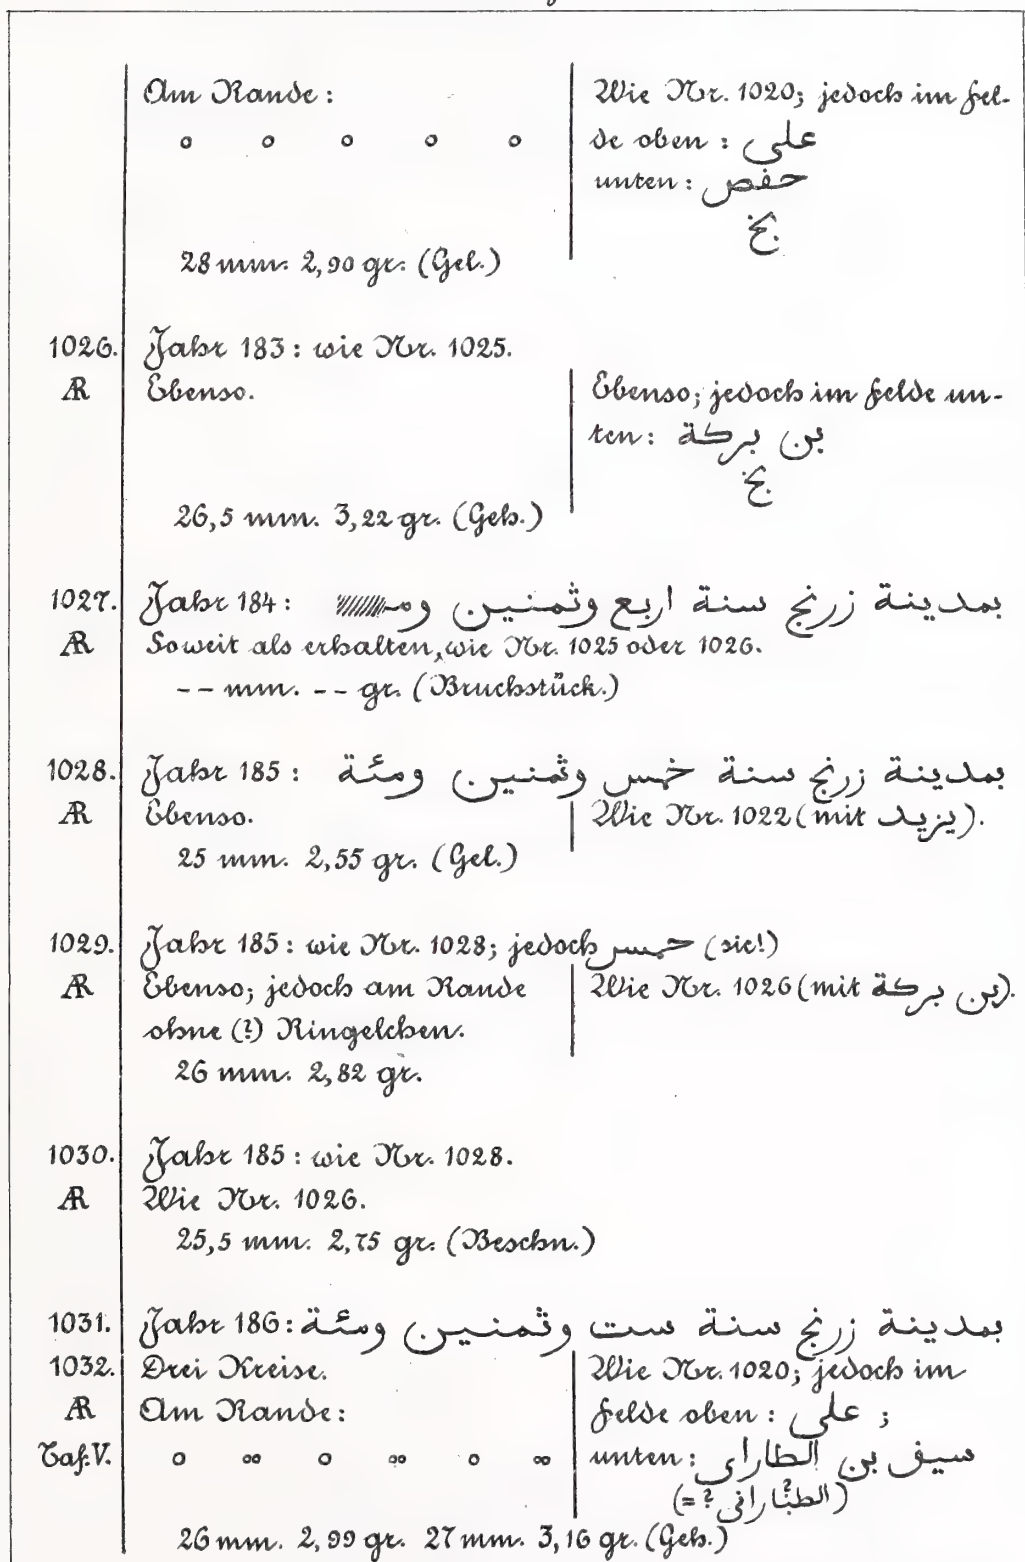 Am Rande:
o o o o o
28 mm. 2,90 gr. (Gel.)
Wie Nr. 1020; jedoch im Fel-
de oben: علي
unten: حفص
بخ
1026. Jahr 183: wie Nr. 1025.
AR Ebenso.
Ebenso; jedoch im Felde un-
ten: بن بركة
بخ
26,5 mm. 3,22 gr. (Geh.)
1027. Jahr 184: بمدينة زرنج سنة اربع وثمنين ومـ
AR Soweit als erhalten, wie Nr. 1025 oder 1026.
-- mm. -- gr. (Bruchstück.)
1028. Jahr 185: بمدينة زرنج سنة خمس وثمنين ومئة
AR Ebenso. Wie Nr. 1022 (mit يزيد).
25 mm. 2,55 gr. (Gel.)
1029. Jahr 185: wie Nr. 1028; jedoch حمس (sic!)
AR Ebenso; jedoch am Rande
ohne (?) Ringelchen.
Wie Nr. 1026 (mit بن بركة).
26 mm. 2,82 gr.
1030. Jahr 185: wie Nr. 1028.
AR Wie Nr. 1026.
25,5 mm. 2,75 gr. (Beschn.)
1031. Jahr 186: بمدينة زرنج سنة ست وثمنين ومئة
1032. Drei Kreise.
AR Am Rande:
Taf. V. o oo o oo o oo
Wie Nr. 1020; jedoch im
Felde oben: على ;
unten: سيف بن الطاراى
(= ? الطبّارانى)
26 mm. 2,99 gr. 27 mm. 3,16 gr. (Geh.)